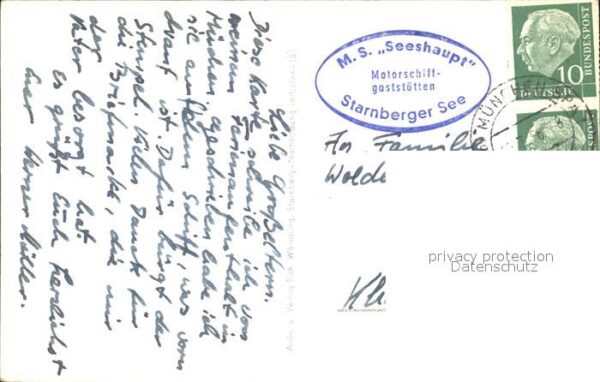 Liebe Großeltern.
Diese Karte schreibe ich von
meinem Ferienaufenthalt in
München. Geschrieben habe ich
sie auf dem Schiff, was vorn
drauf ist. Dafür bürgt der
Stempel. Vielen Dank für
die Briefmarke, die mir
der Vater besorgt hat.
Es grüßt Euch herzlichst
Euer Werner Müller.
M.S. „Seeshaupt"
Motorschiff-
gaststätten
Starnberger See
DEUTSCHE
BUNDESPOST
10
MÜNCHEN
An Familie
Wolde
privacy protection
Datenschutz